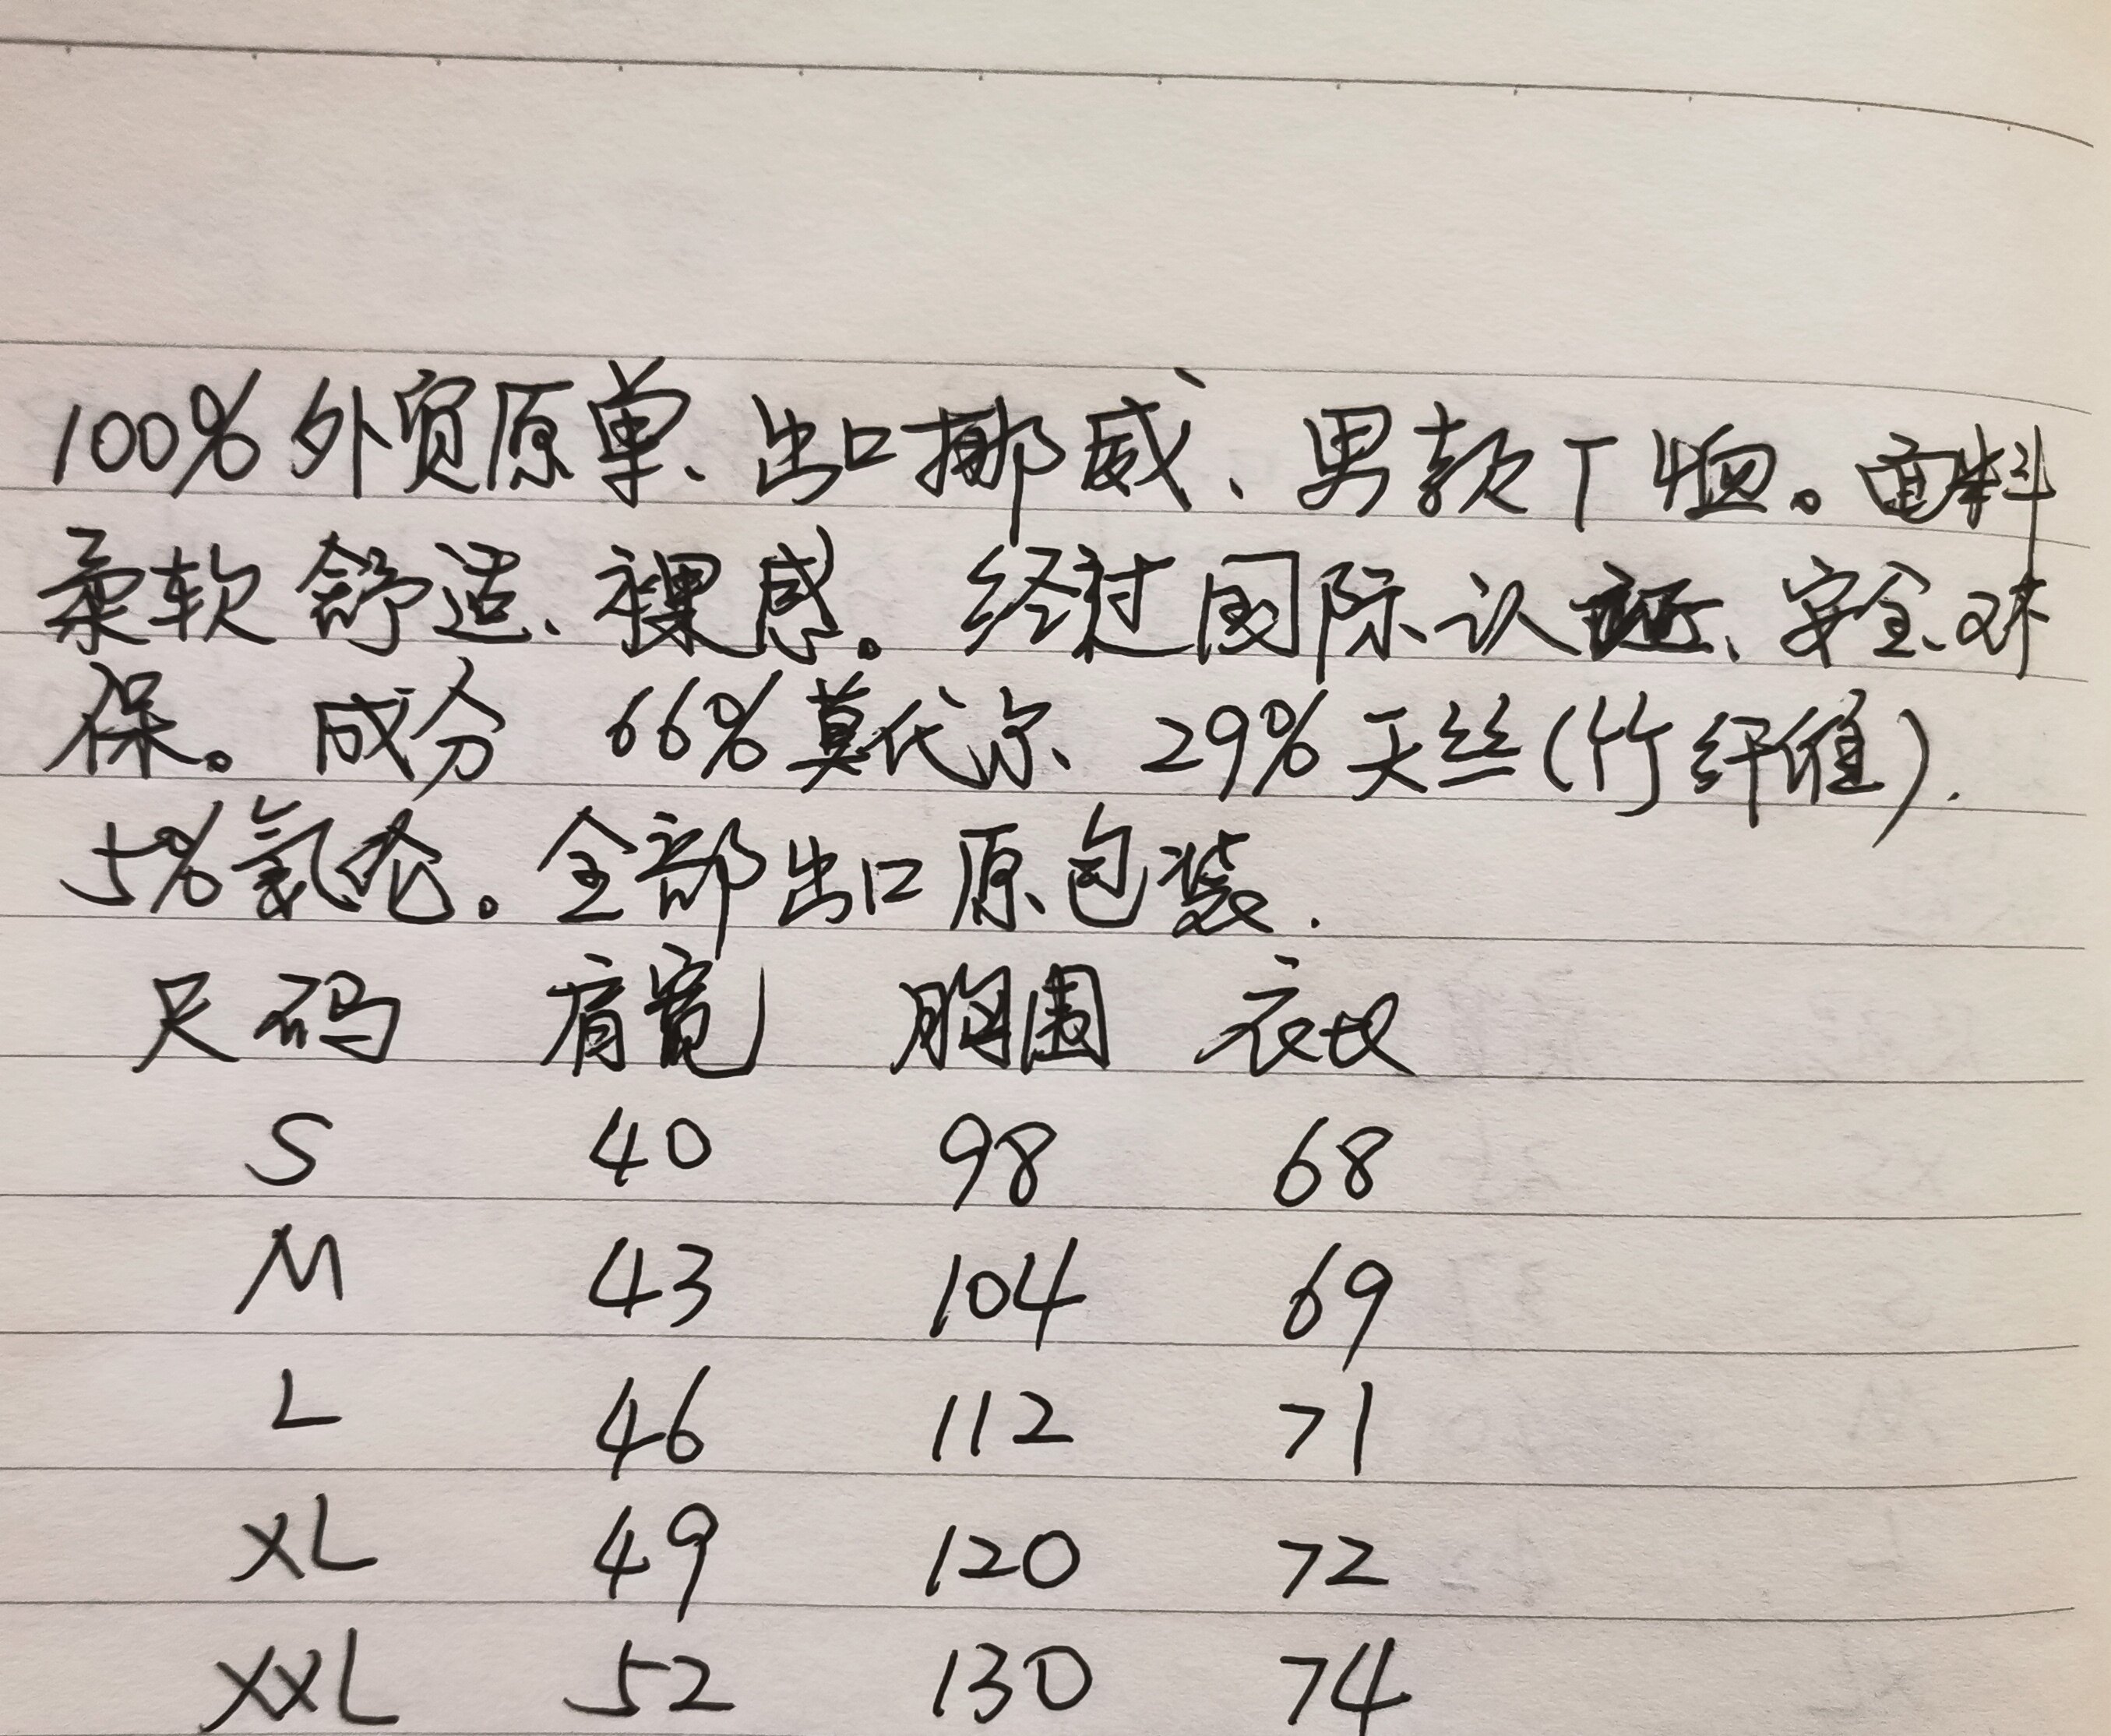 100%外贸原单、出口挪威、男款T恤。面料
柔软舒适、裸感。经过国际认证、安全、环
保。成分 66%莫代尔、29%天丝(竹纤维).
5%氨纶。全部出口原包装.
尺码 肩宽 胸围 衣长
S 40 98 68
M 43 104 69
L 46 112 71
XL 49 120 72
XXL 52 130 74